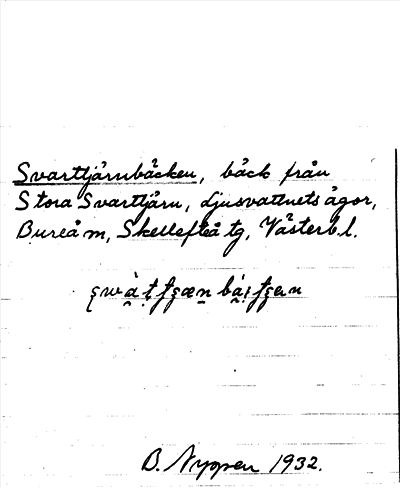 Svarttjärnbäcken, bäck från
Stora Svarttjärn, Ljusvattnets ägor,
Bureå m, Skellefteå tg, Västerb l.
B. Nygren 1932.